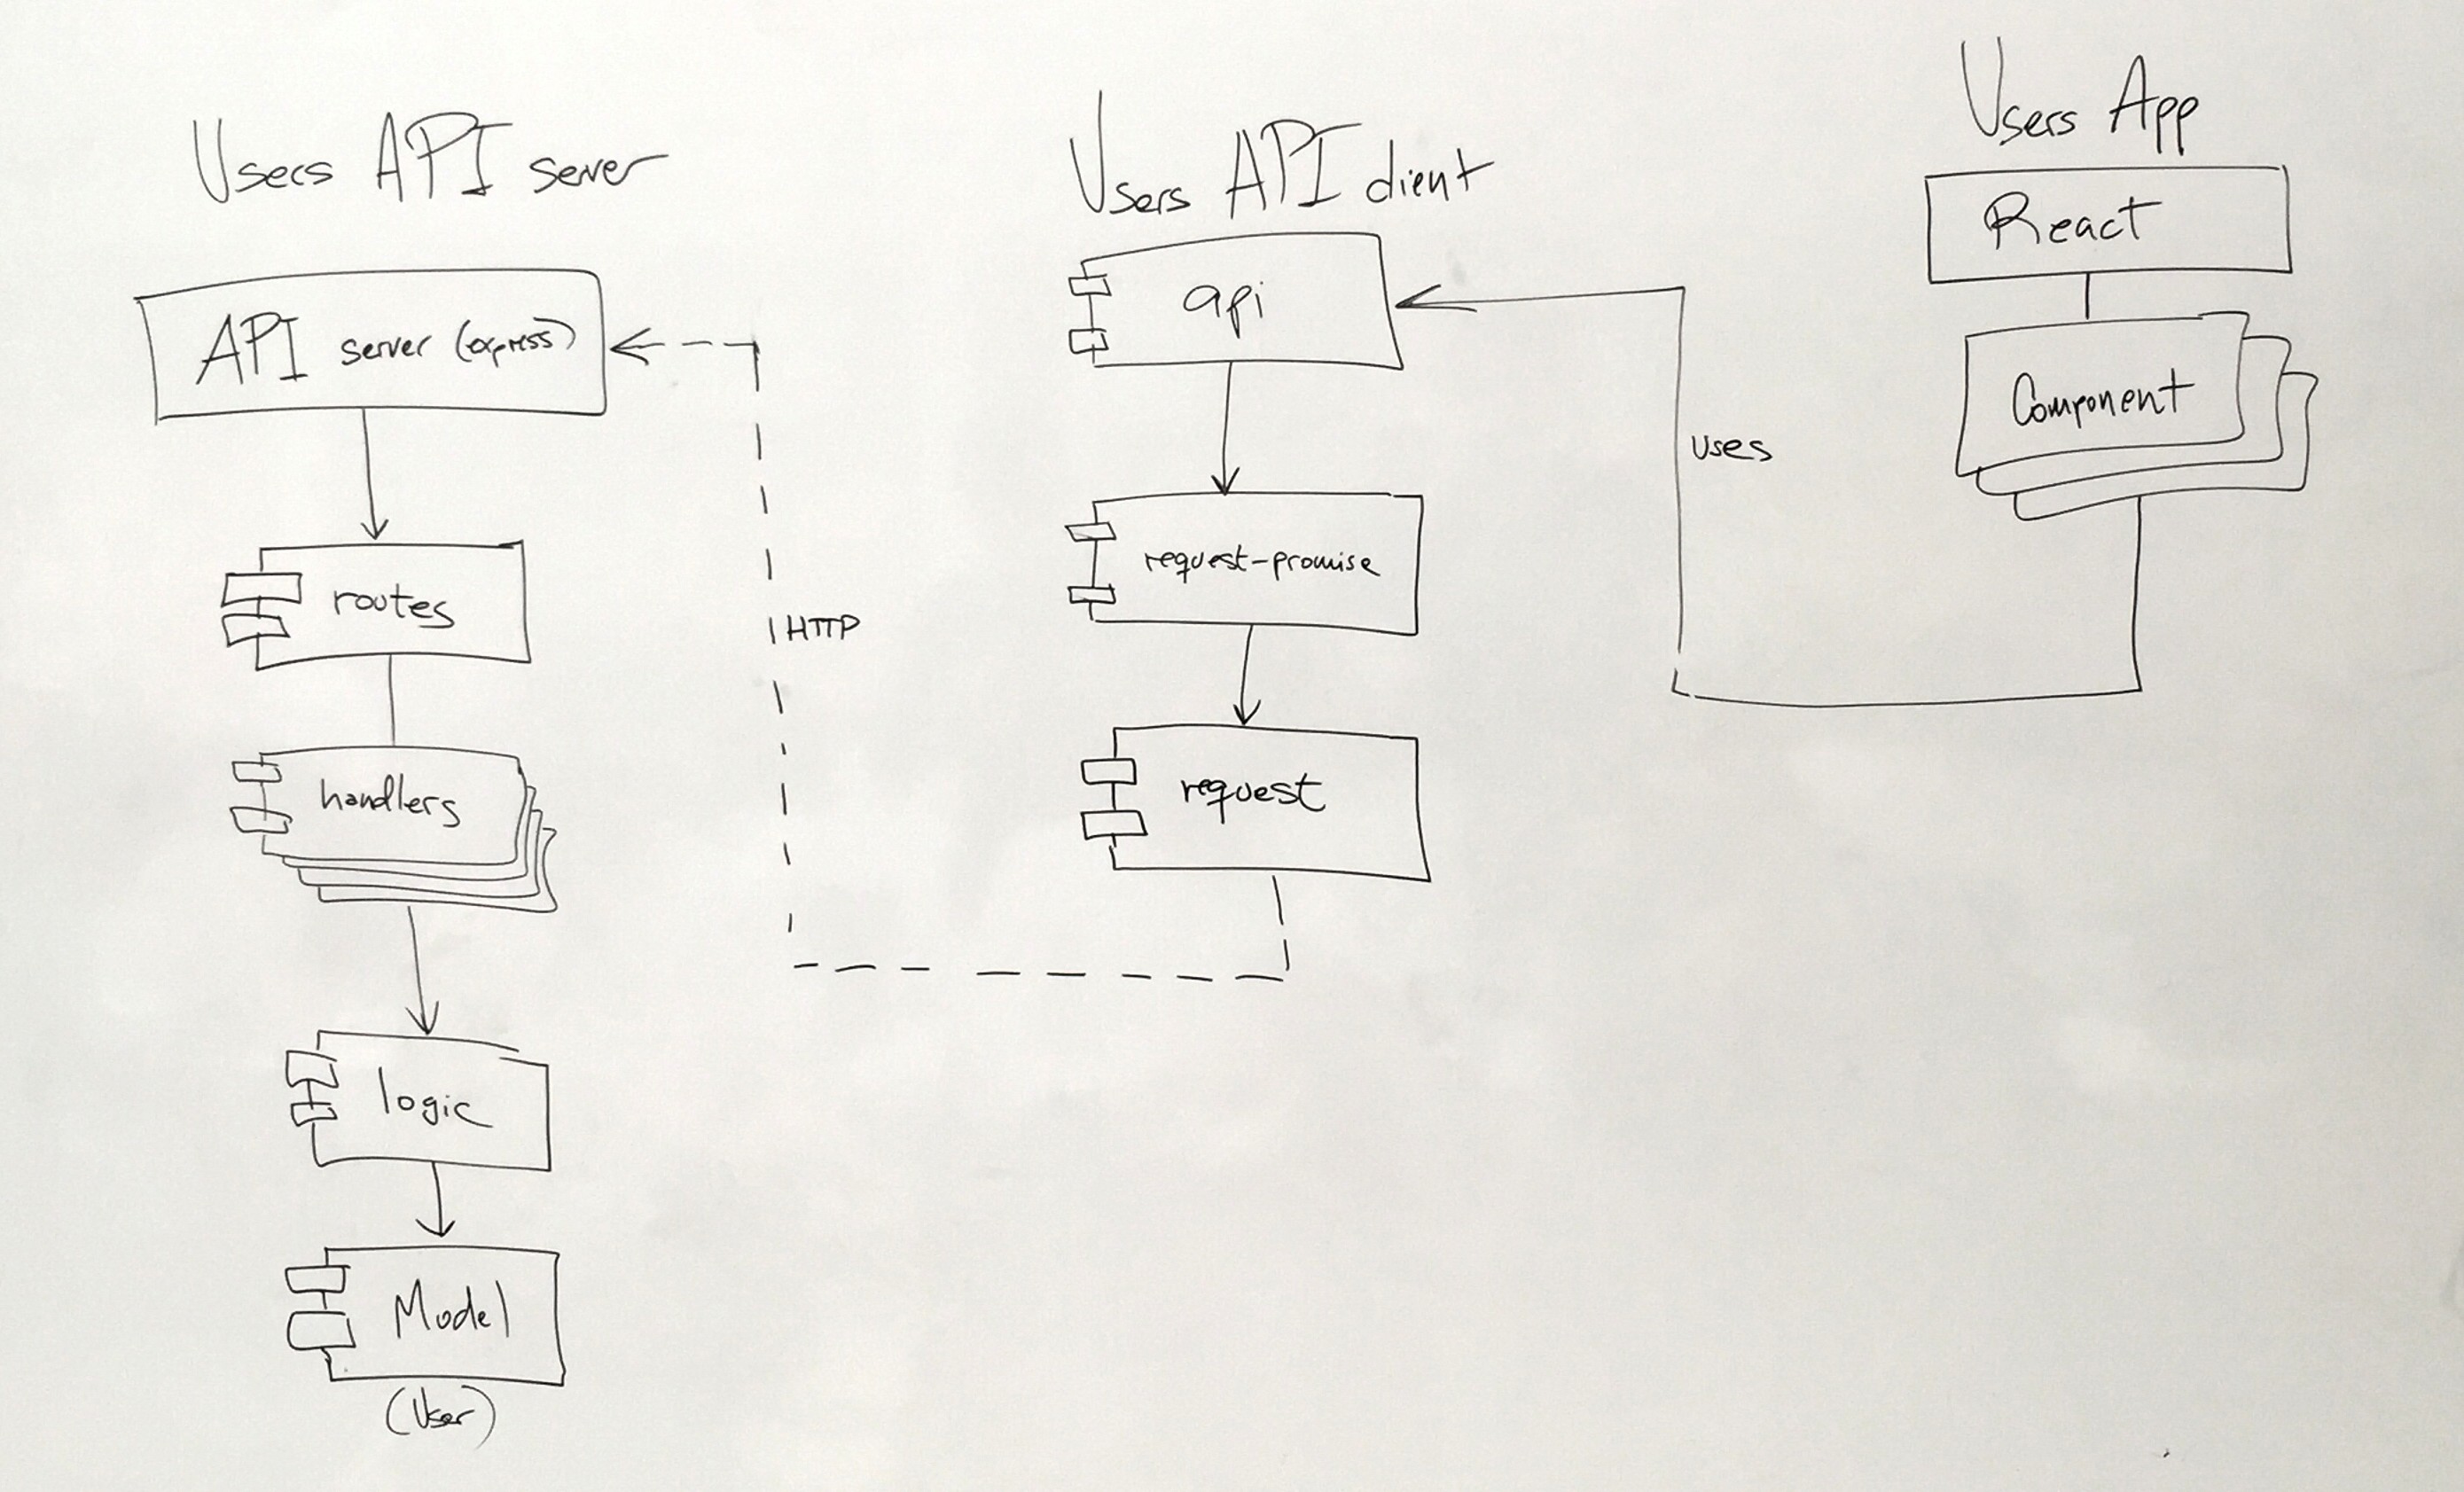 Users API server
API server (express)
routes
handlers
logic
Model
(User)
HTTP
Users API client
api
request-promise
request
uses
Users App
React
Component